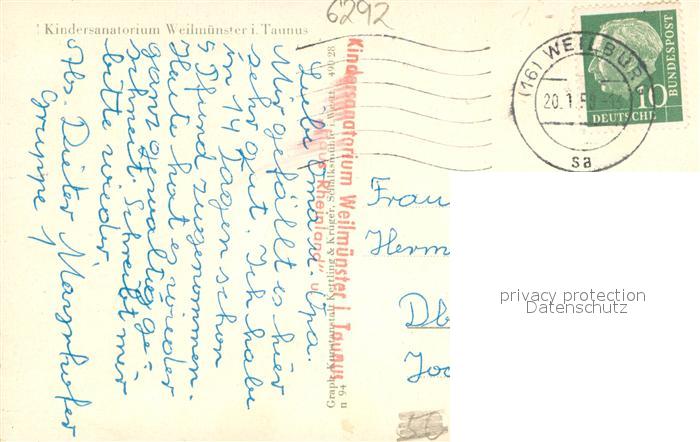 6292
Kindersanatorium Weilmünster i. Taunus
Liebe Oma u. Opa.
Mir gefällt es hier
sehr gut. Ich habe
in 14 Tagen schon
5 Pfund zugenommen.
Heute hat es wieder
ganz gewaltig ge-
schneit. Schreibt mir
bitte wieder
Abs. Dieter
Gruppe 1
Kindersanatorium Weilmünster i. Taunus
Rheinland"
Graph. Kunstanstalt Kettling & Krüger, Schalksmühle i. Westf.
n 94
490/28
(16) WEILBURG
20.1.58
sa
10
DEUTSCHE
BUNDESPOST
Frau
Herm
Db
Joc
privacy protection
Datenschutz